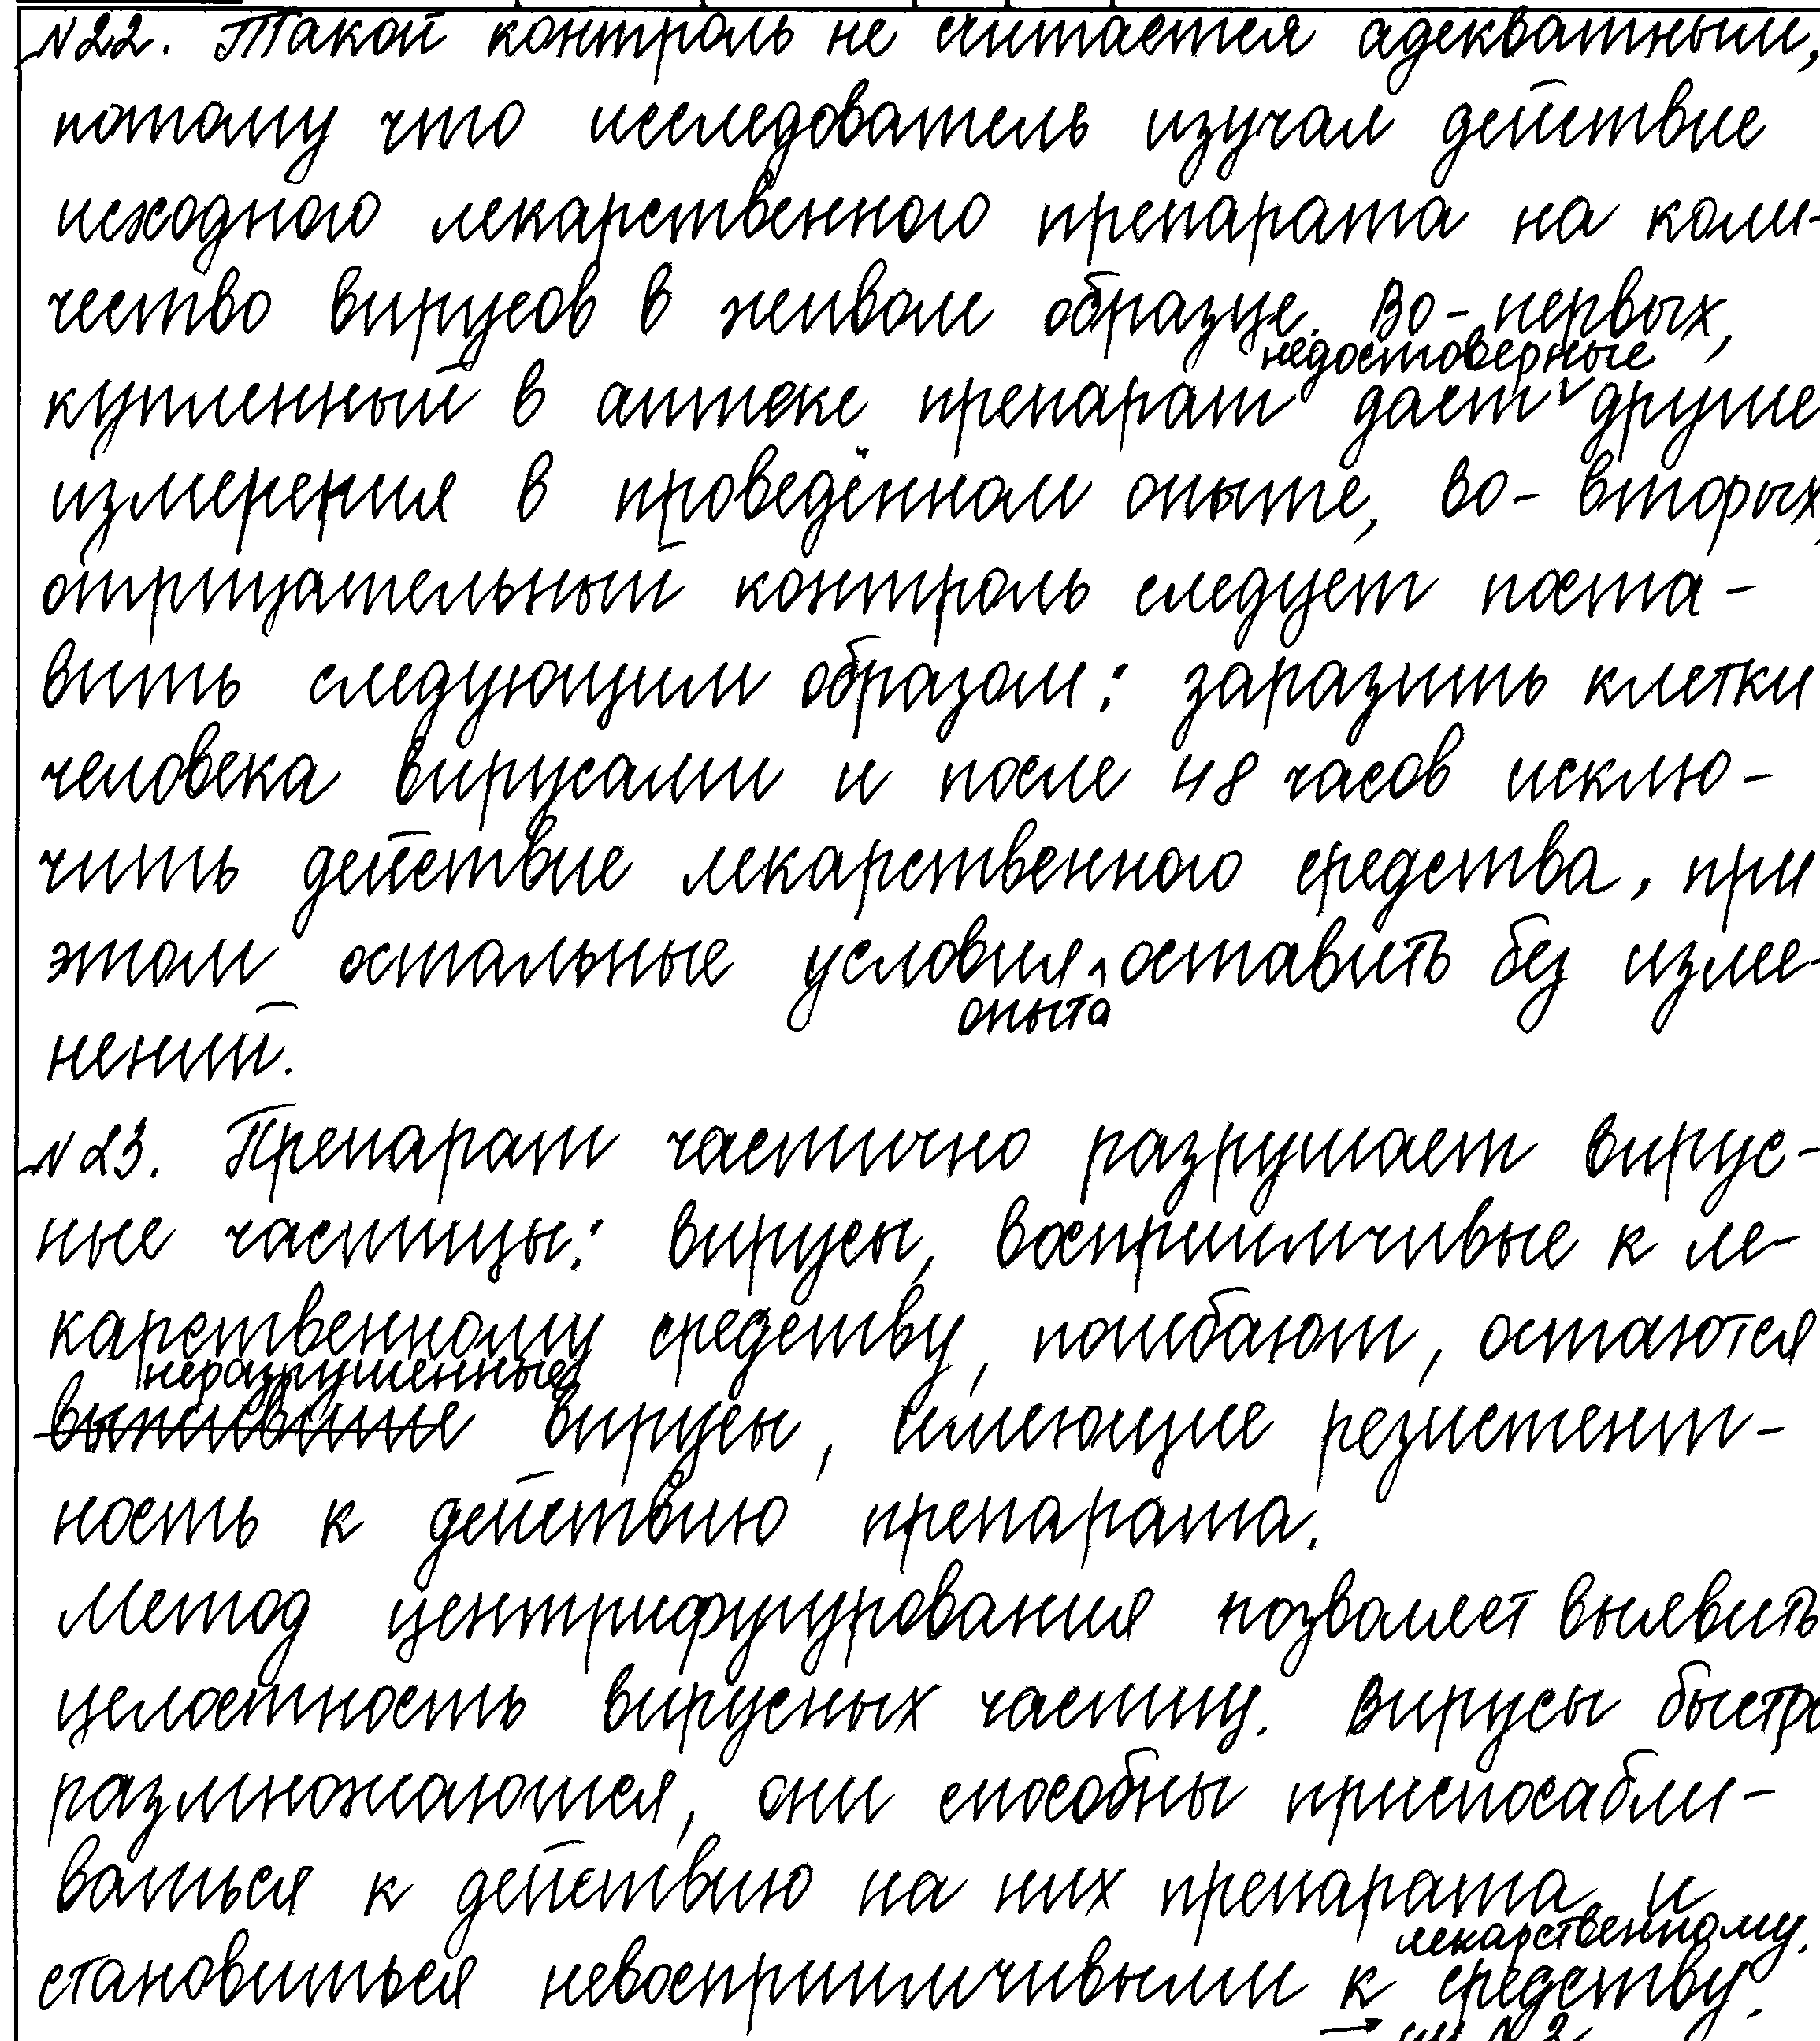 №22. Такой контроль не считается адекватным,
потому что исследователь изучал действие
исходного лекарственного препарата на коли-
чество вирусов в живом образце. Во-первых,
недостоверные
купленный в аптеке препарат дает другие
измерения в проведённом опыте, во-вторых,
отрицательный контроль следует поста-
вить следующим образом: заразить клетки
человека вирусами и после 48 часов исклю-
чить действие лекарственного средства, при
этом остальные условия оставить без изме-
опыта
нений.
№23. Препарат частично разрушает вирус-
ные частицы: вирусы, восприимчивые к ле-
карственному средству, погибают, остаются
неразрушенные
выжившие вирусы, имеющие резистент-
ность к действию препарата.
Метод центрифугирования позволяет выявить
целостность вирусных частиц. Вирусы быстро
размножаются, они способны приспосабли-
ваться к действию на них препарата и
лекарственному
становиться невосприимчивыми к средству.